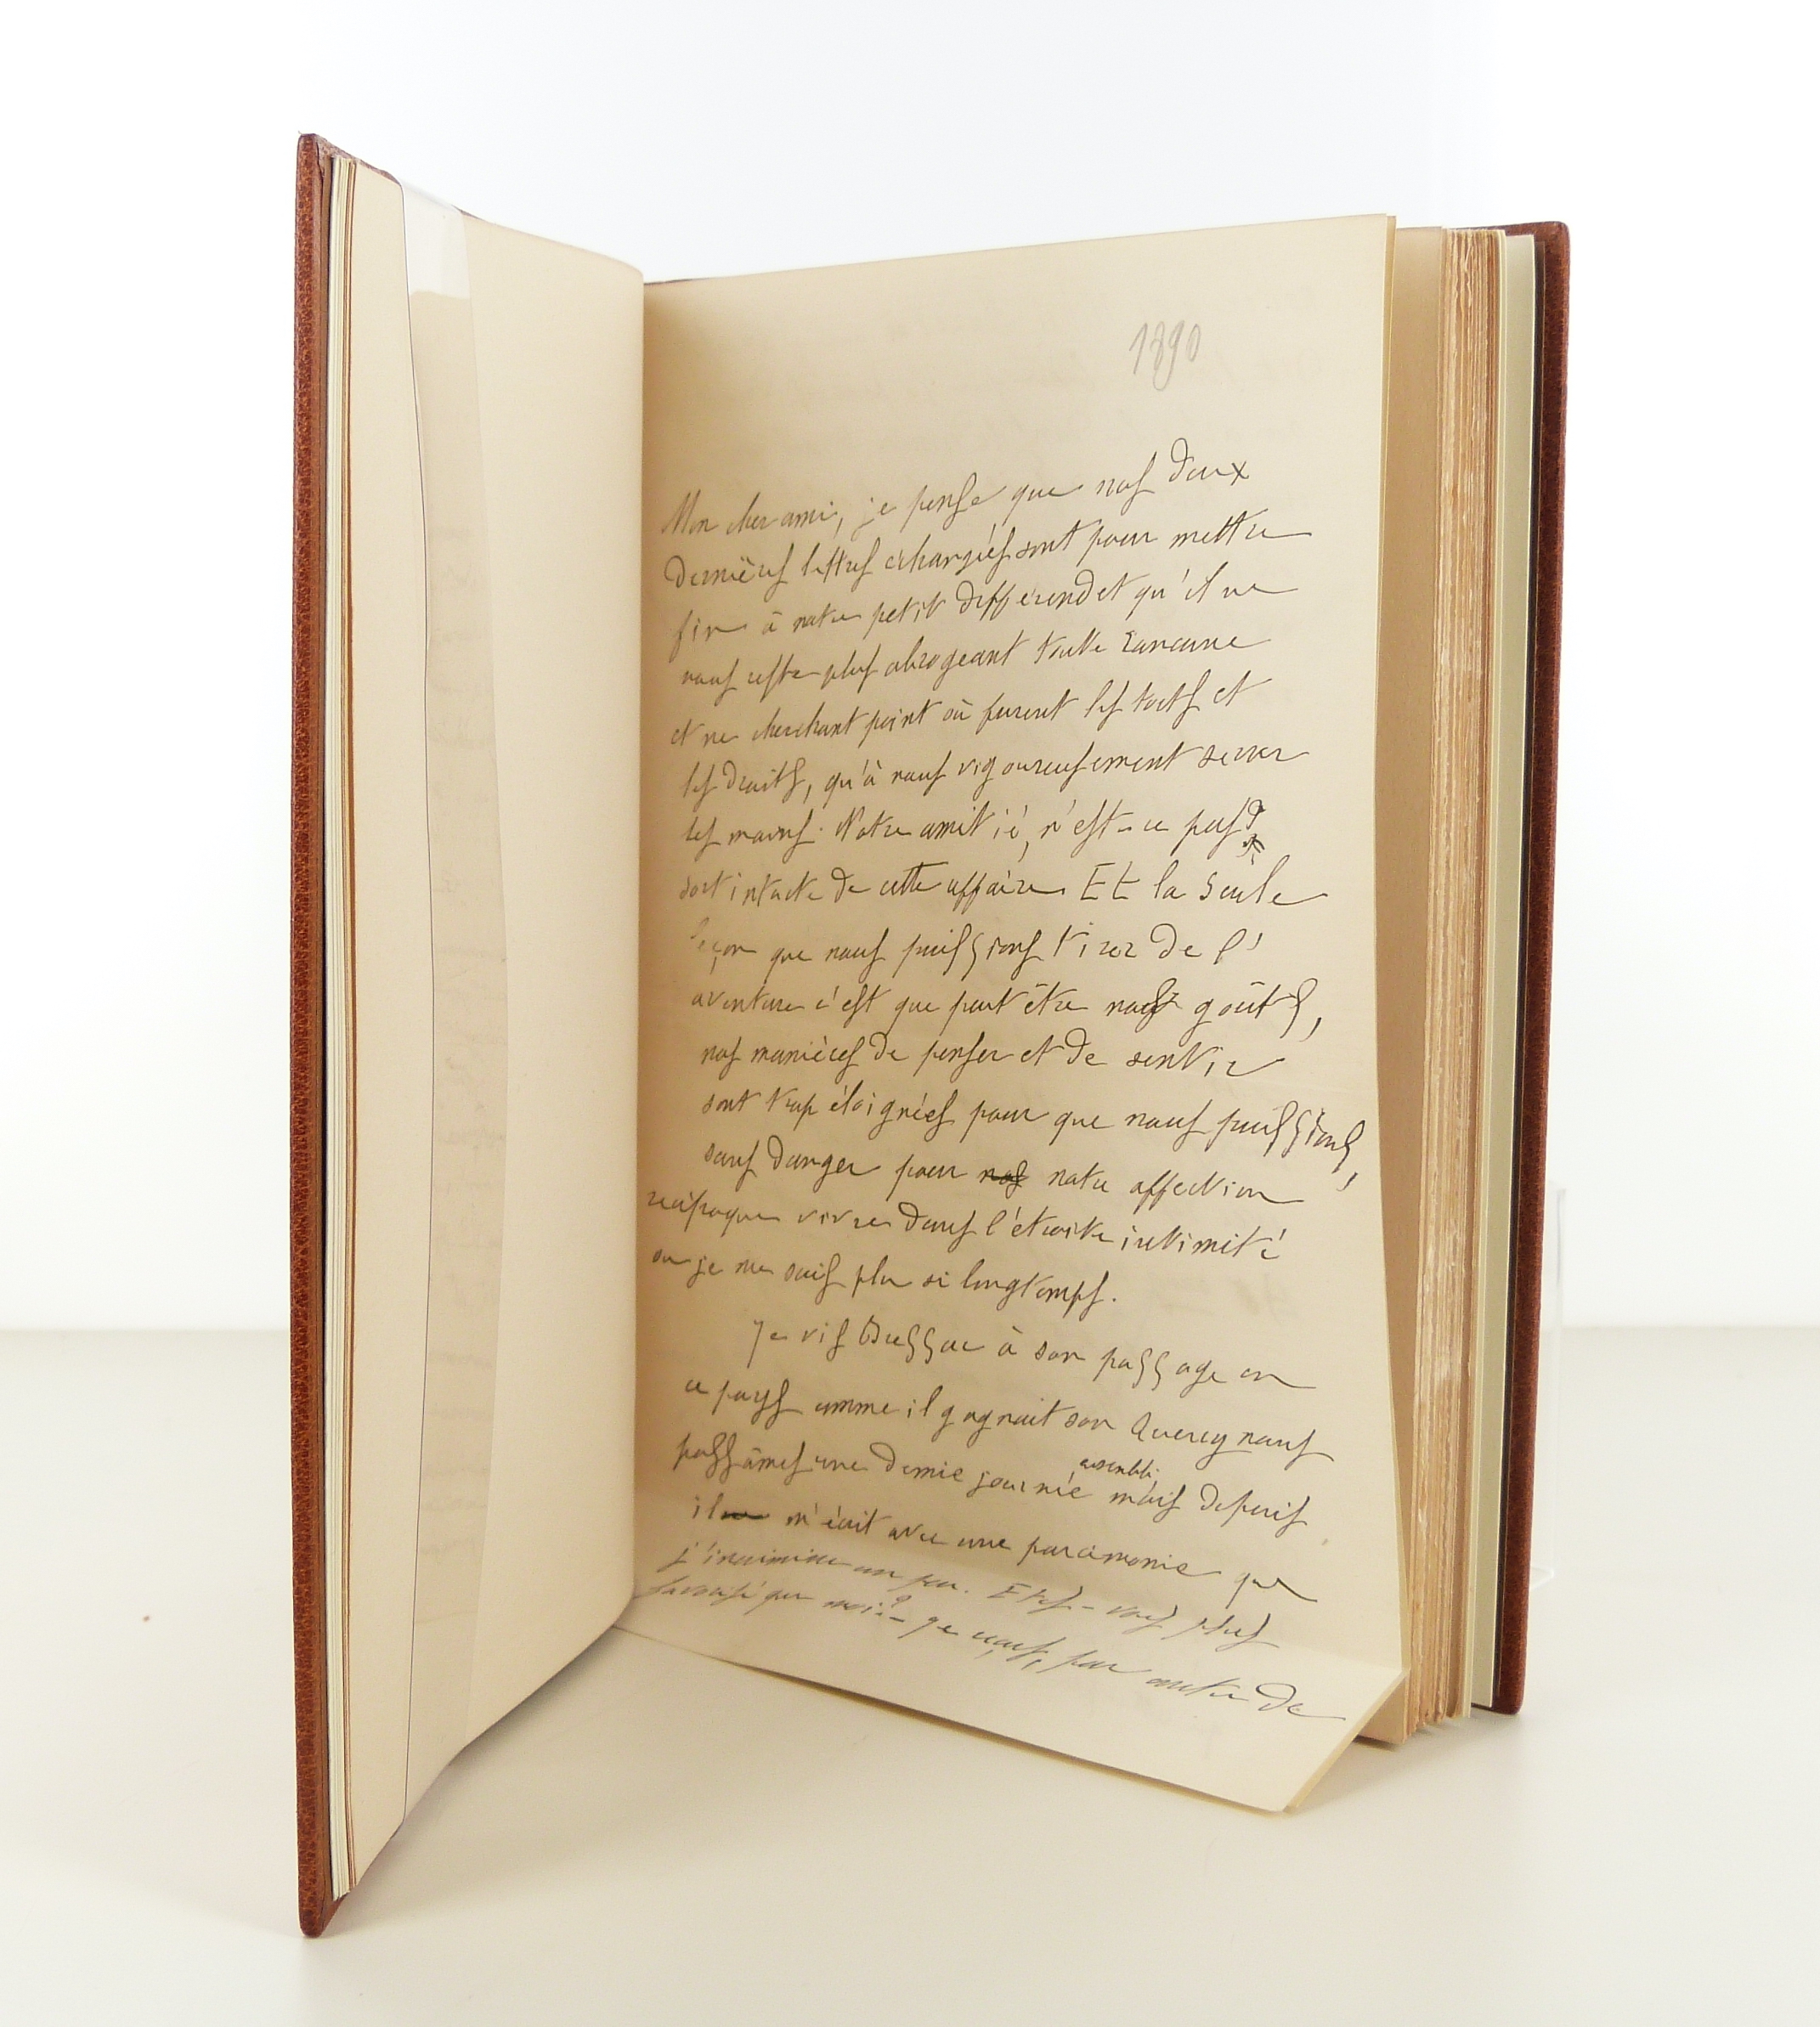 1890
Mon cher ami, je pense que nos deux
dernières lettres échangées sont pour mettre
fin à notre petit différend et qu'il ne
nous reste plus abrogeant toute rancune
et ne cherchant point où furent les torts et
les droits, qu'à nous vigoureusement serrer
les mains. Notre amitié, n'est-ce pas?
sort intacte de cette affaire. Et la seule
leçon que nous puissions tirer de l'
aventure c'est que peut être nos goûts,
nos manières de penser et de sentir
sont trop éloignées pour que nous puissions,
sans danger pour nos notre affection
réciproque vivre dans l'étroite intimité
ou je me suis plu si longtemps.
Je vis Bussac à son passage en
ce pays comme il gagnait son Quercy nous
passâmes une demie journée ensemble mais depuis
il m'écrit avec une parcimonie que
j'incrimine un peu. Etes-vous plus
favorisé que moi?- Je reçus, par contre de